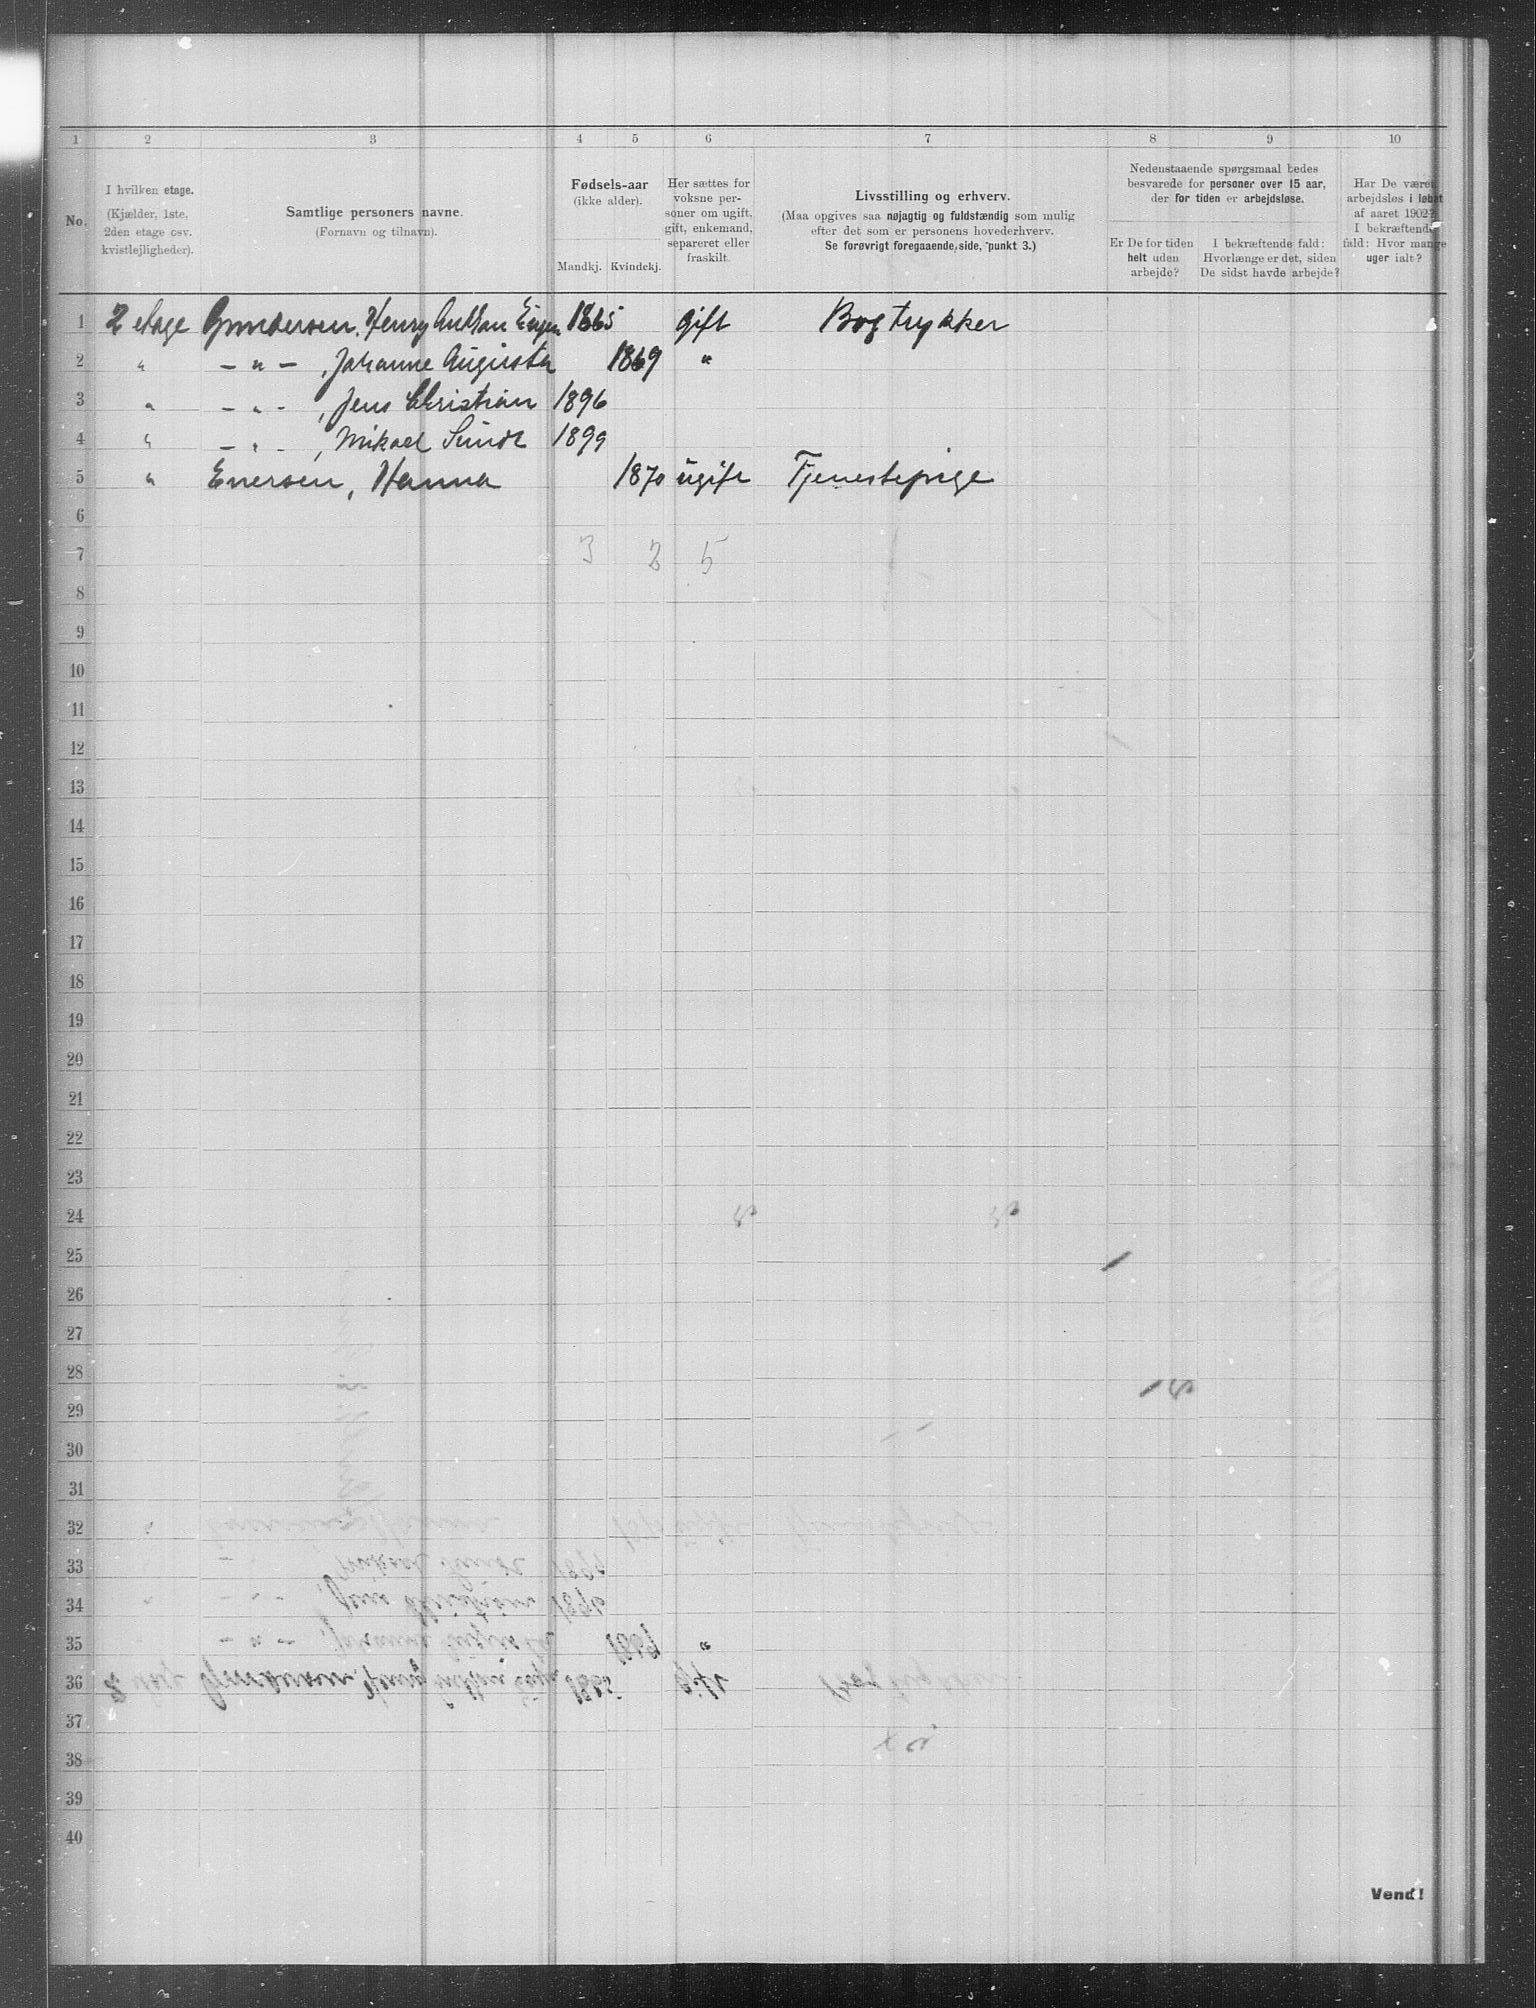 1 2 3 4 5 6 7 8 9 10
No.
I hvilken etage.
(Kjælder, 1ste,
2den etage osv.
kvistlejligheder).
Samtlige personers navne.
(Fornavn og tilnavn).
Fødsels-aar
(ikke alder).
Mandkj. Kvindekj.
Her sættes for
voksne per-
soner om ugift,
gift, enkemand,
separeret eller
fraskilt.
Livsstilling og erhverv.
(Maa opgives saa nøjagtig og fuldstændig som mulig
efter det som er personens hovederhverv.
Se forøvrigt foregaaende side, punkt 3.)
Nedenstaaende spørgsmaal bedes
besvarede for personer over 15 aar,
der for tiden er arbejdsløse.
Er De for tiden
helt uden
arbejde?
I bekræftende fald:
Hvorlænge er det, siden
De sidst havde arbejde?
Har De været
arbejdsløs i løbet
af aaret 1902?
I bekræftende
fald: Hvor mange
uger ialt?
1 2 etage Gundersen, Henry 1865 gift Bogtrykker
2 " — " — , Johanne Augusta 1869 "
3 " — " — , Jens Christian 1896
4 " — " — , Mikael Sundt 1899
5 " Enersen, Hanna 1870 ugift Tjenestepige
6
7 3 2 5
8
9
10
11
12
13
14
15
16
17
18
19
20
21
22
23
24
25
26
27
28
29
30
31
32
33
34
35
36
37
38
39
40
Vend!